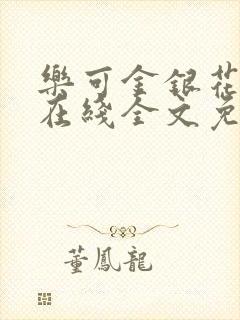 樂可金銀花
在綫全文免
董鳳龍